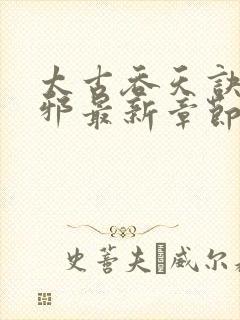 太古吞天诀
邪最新章节
史蒂夫 威尔